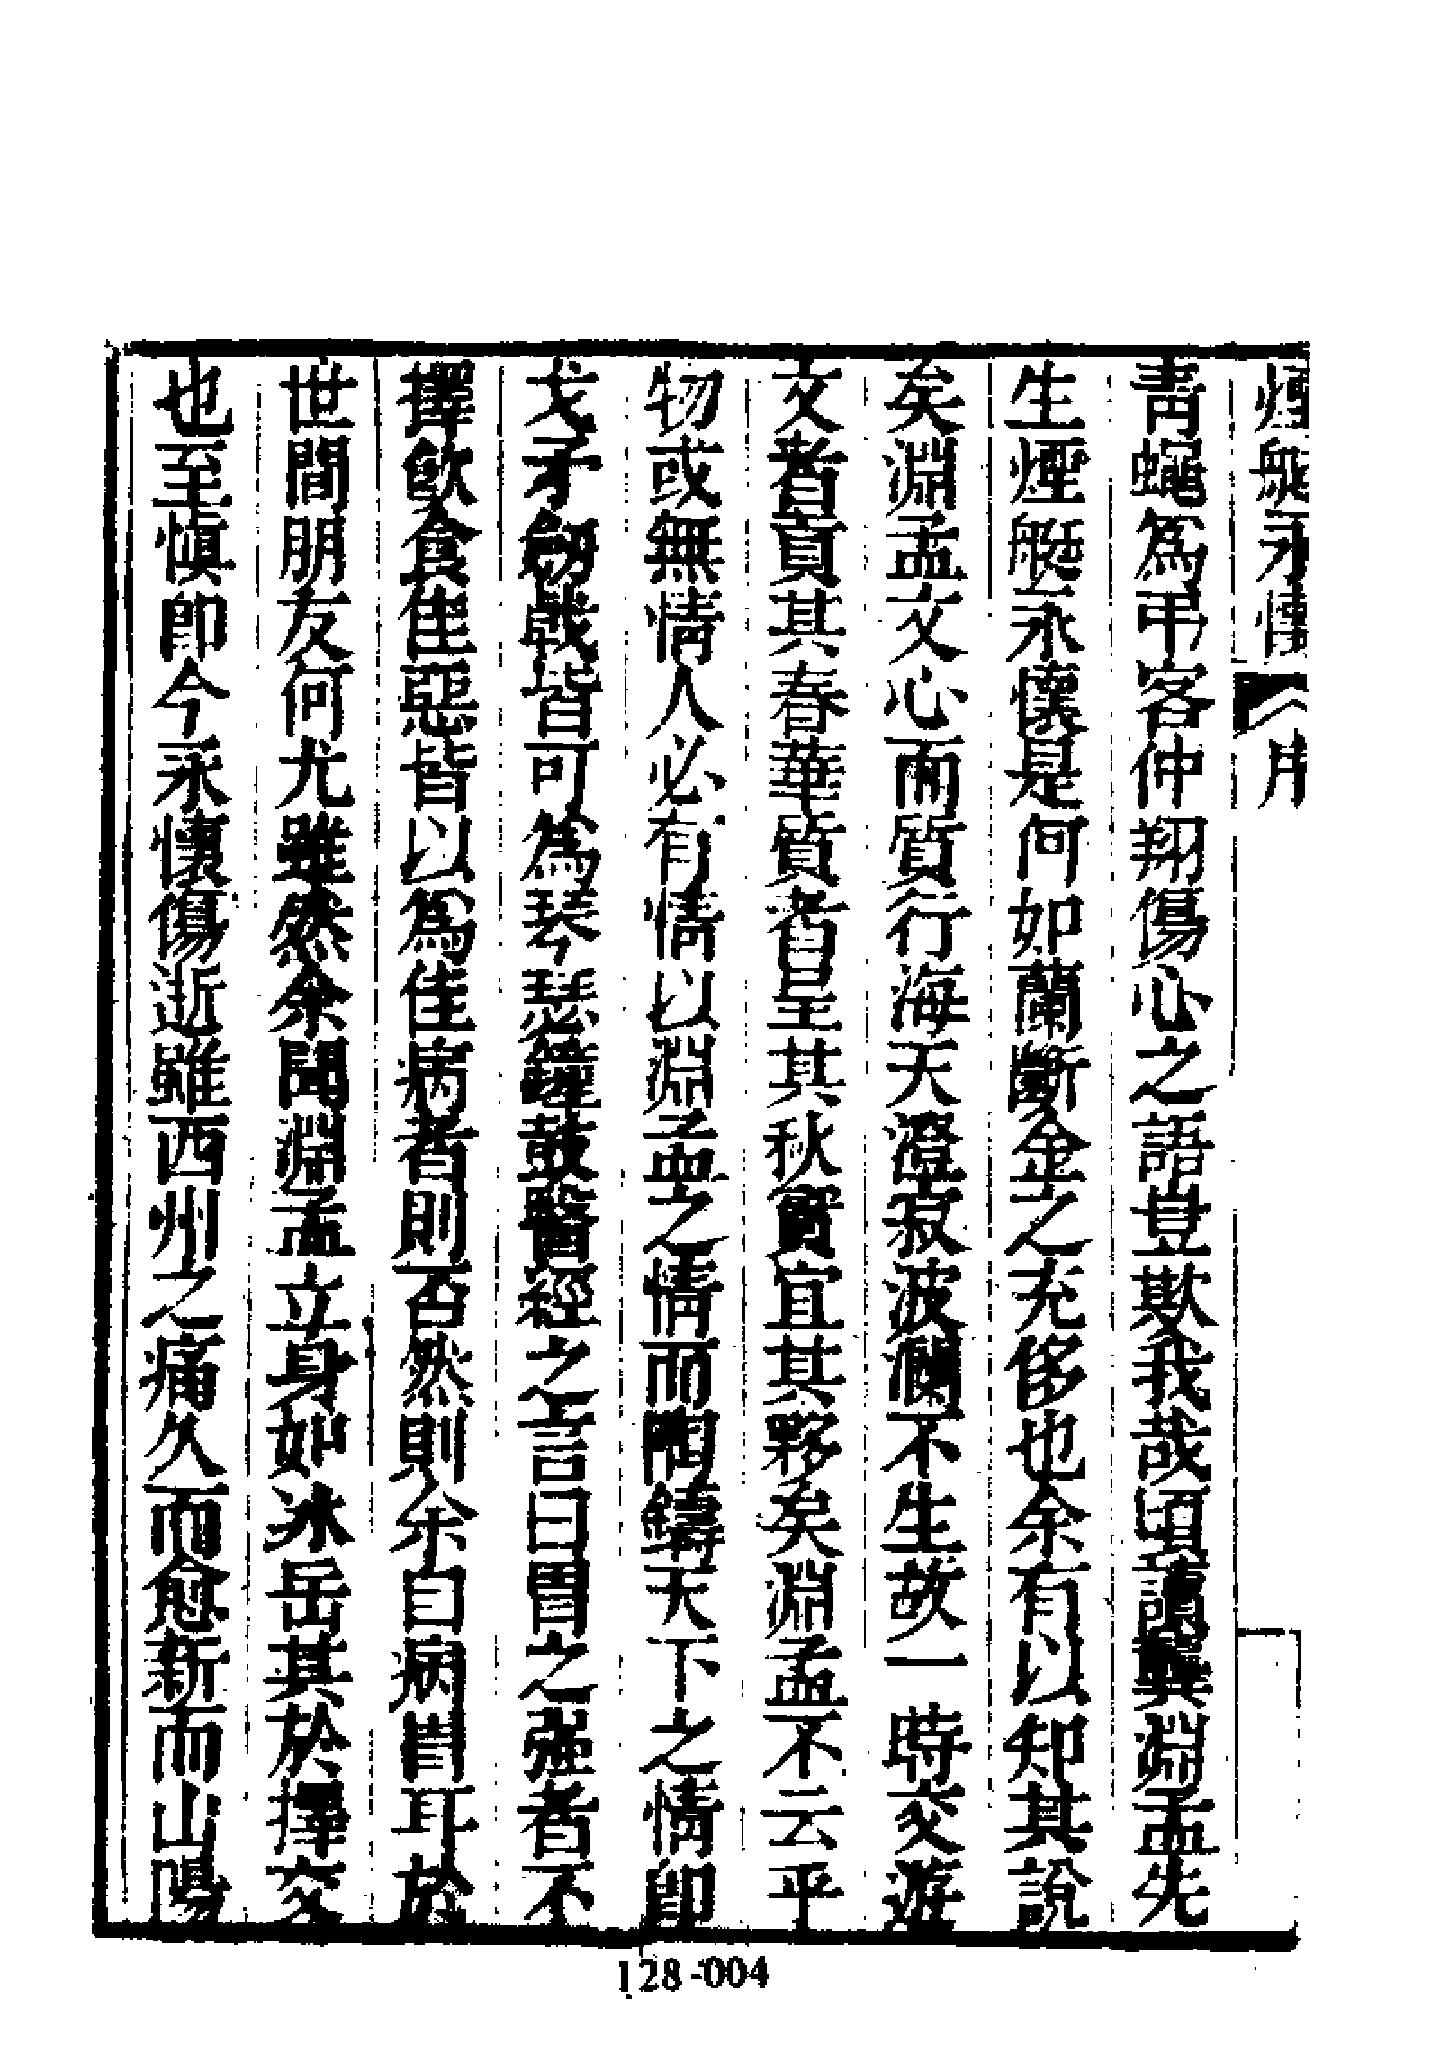 煙艇永懷 序
青蠅爲弔客仲翔傷心之語豈欺我哉頃讀龔淵孟先
生煙艇永懷是何如蘭斷金之充侈也余有以知其說
矣淵孟文心而質行海天澄寂波瀾不生故一時交游
文者貢其春華質者呈其秋實宜其夥矣淵孟不云乎
物或無情人必有情以淵孟之情而陶鑄天下之情即
戈矛劒戟皆可爲琴瑟鐘鼓醫經之言曰胃之强者不
擇飲食佳惡皆以爲佳病者則否然則余自病胃耳於
世間朋友何尤雖然余聞淵孟立身如冰岳其於擇交
也至愼即今永懷傷逝雖西州之痛久而愈新而山陽
128-004